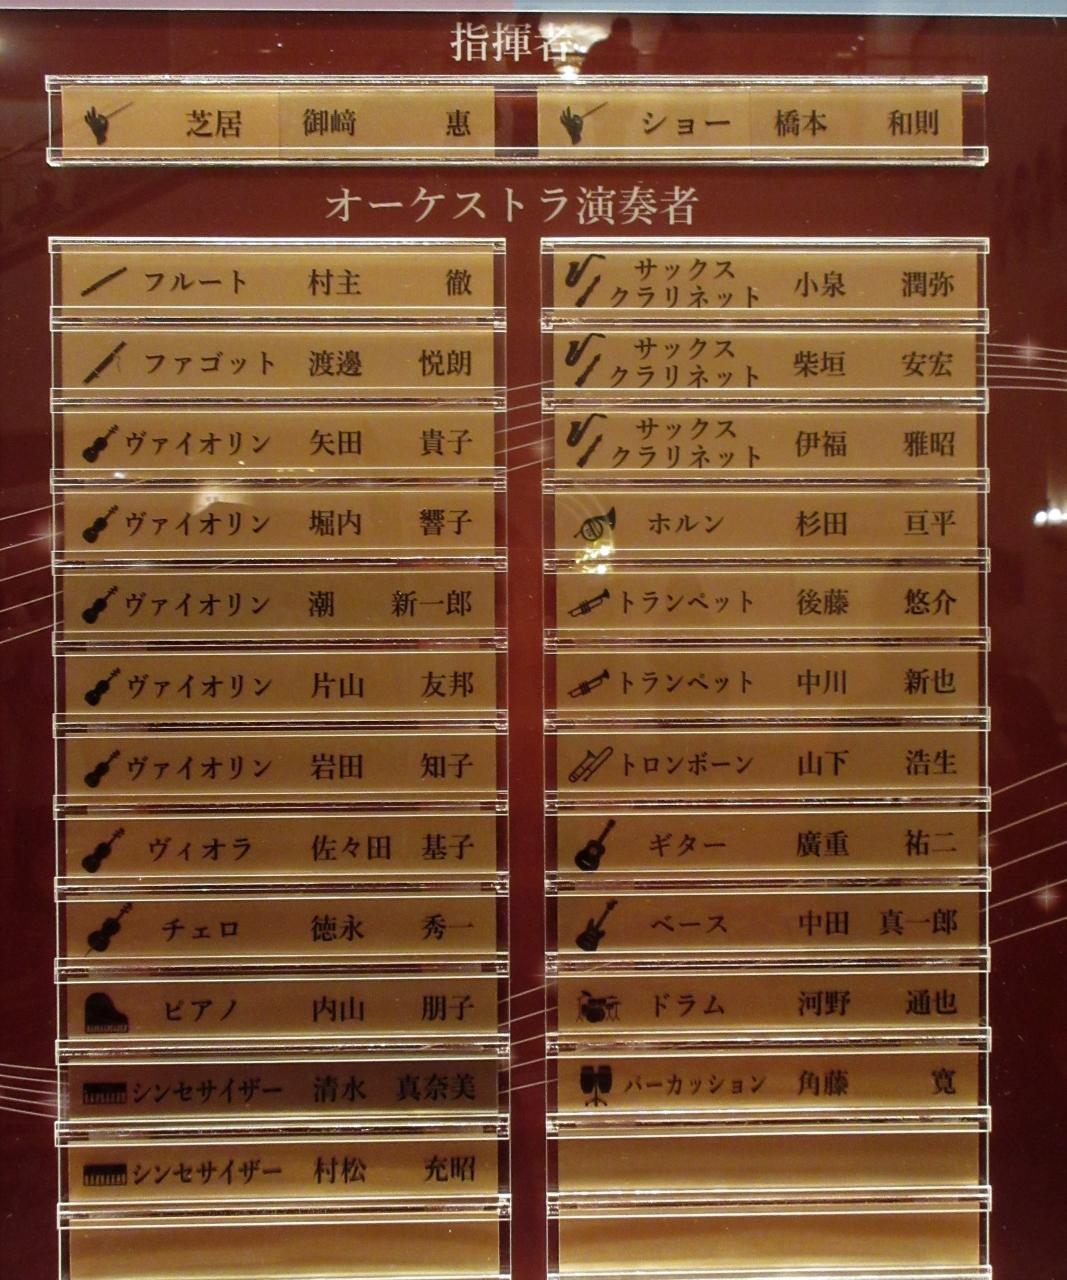 指揮者
芝居 御﨑 惠
ショー 橋本 和則
オーケストラ演奏者
フルート 村主 徹
ファゴット 渡邊 悦朗
ヴァイオリン 矢田 貴子
ヴァイオリン 堀内 響子
ヴァイオリン 潮 新一郎
ヴァイオリン 片山 友邦
ヴァイオリン 岩田 知子
ヴィオラ 佐々田 基子
チェロ 徳永 秀一
ピアノ 内山 朋子
シンセサイザー 清水 真奈美
シンセサイザー 村松 充昭
サックス
クラリネット 小泉 潤弥
サックス
クラリネット 柴垣 安宏
サックス
クラリネット 伊福 雅昭
ホルン 杉田 亘平
トランペット 後藤 悠介
トランペット 中川 新也
トロンボーン 山下 浩生
ギター 廣重 祐二
ベース 中田 真一郎
ドラム 河野 通也
パーカッション 角藤 寛